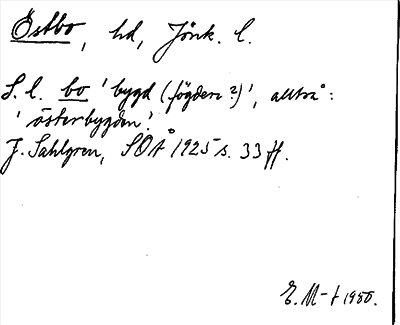 Östbo, hd, Jönk. l.
S. l. bo 'bygd (fögderi?)', alltså:
'österbygden'.
J. Sahlgren, SOÅ 1925 s. 33 ff.
E. M-t 1980.